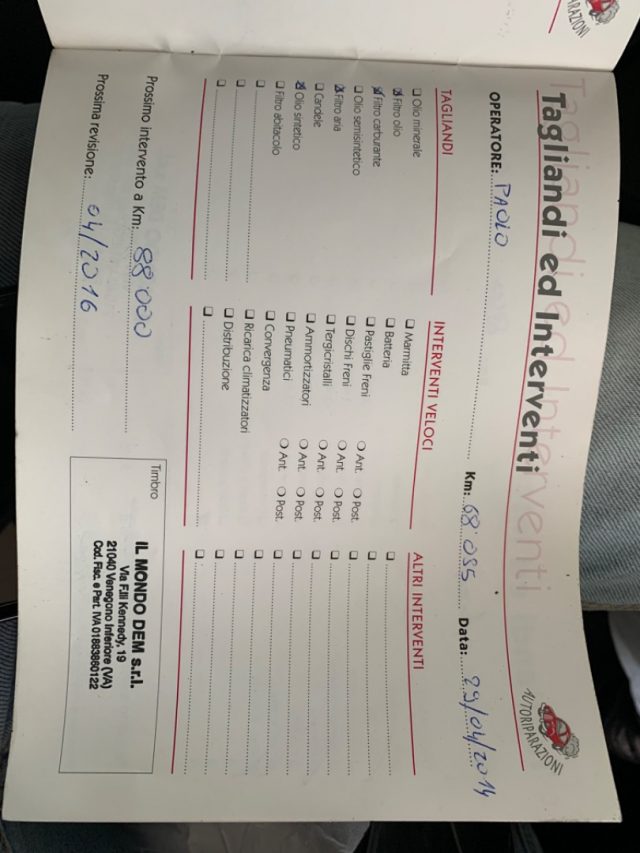 Tagliandi ed Interventi
Tagliandi ed Interventi
AUTORIPARAZIONI
OPERATORE: PAOLO Km: 68'055 Data: 29/04/2014
TAGLIANDI
❑ Olio minerale
❑ Filtro olio
❑ Filtro carburante
❑ Olio semisintetico
❑ Filtro aria
❑ Candele
❑ Olio sintetico
❑ Filtro abitacolo
INTERVENTI VELOCI
❑ Marmitta
❑ Batteria
❑ Pastiglie Freni ❍ Ant. ❍ Post.
❑ Dischi Freni ❍ Ant. ❍ Post.
❑ Tergicristalli ❍ Ant. ❍ Post.
❑ Ammortizzatori ❍ Ant. ❍ Post.
❑ Pneumatici ❍ Ant. ❍ Post.
❑ Convergenza
❑ Ricarica climatizzatori
❑ Distribuzione
ALTRI INTERVENTI
Prossimo intervento a Km: 88'000
Prossima revisione: 04/2016
Timbro
IL MONDO DEM s.r.l.
Via F.lli Kennedy, 19
21040 Venegono Inferiore (VA)
Cod. Fisc. e Part. IVA 01883860122